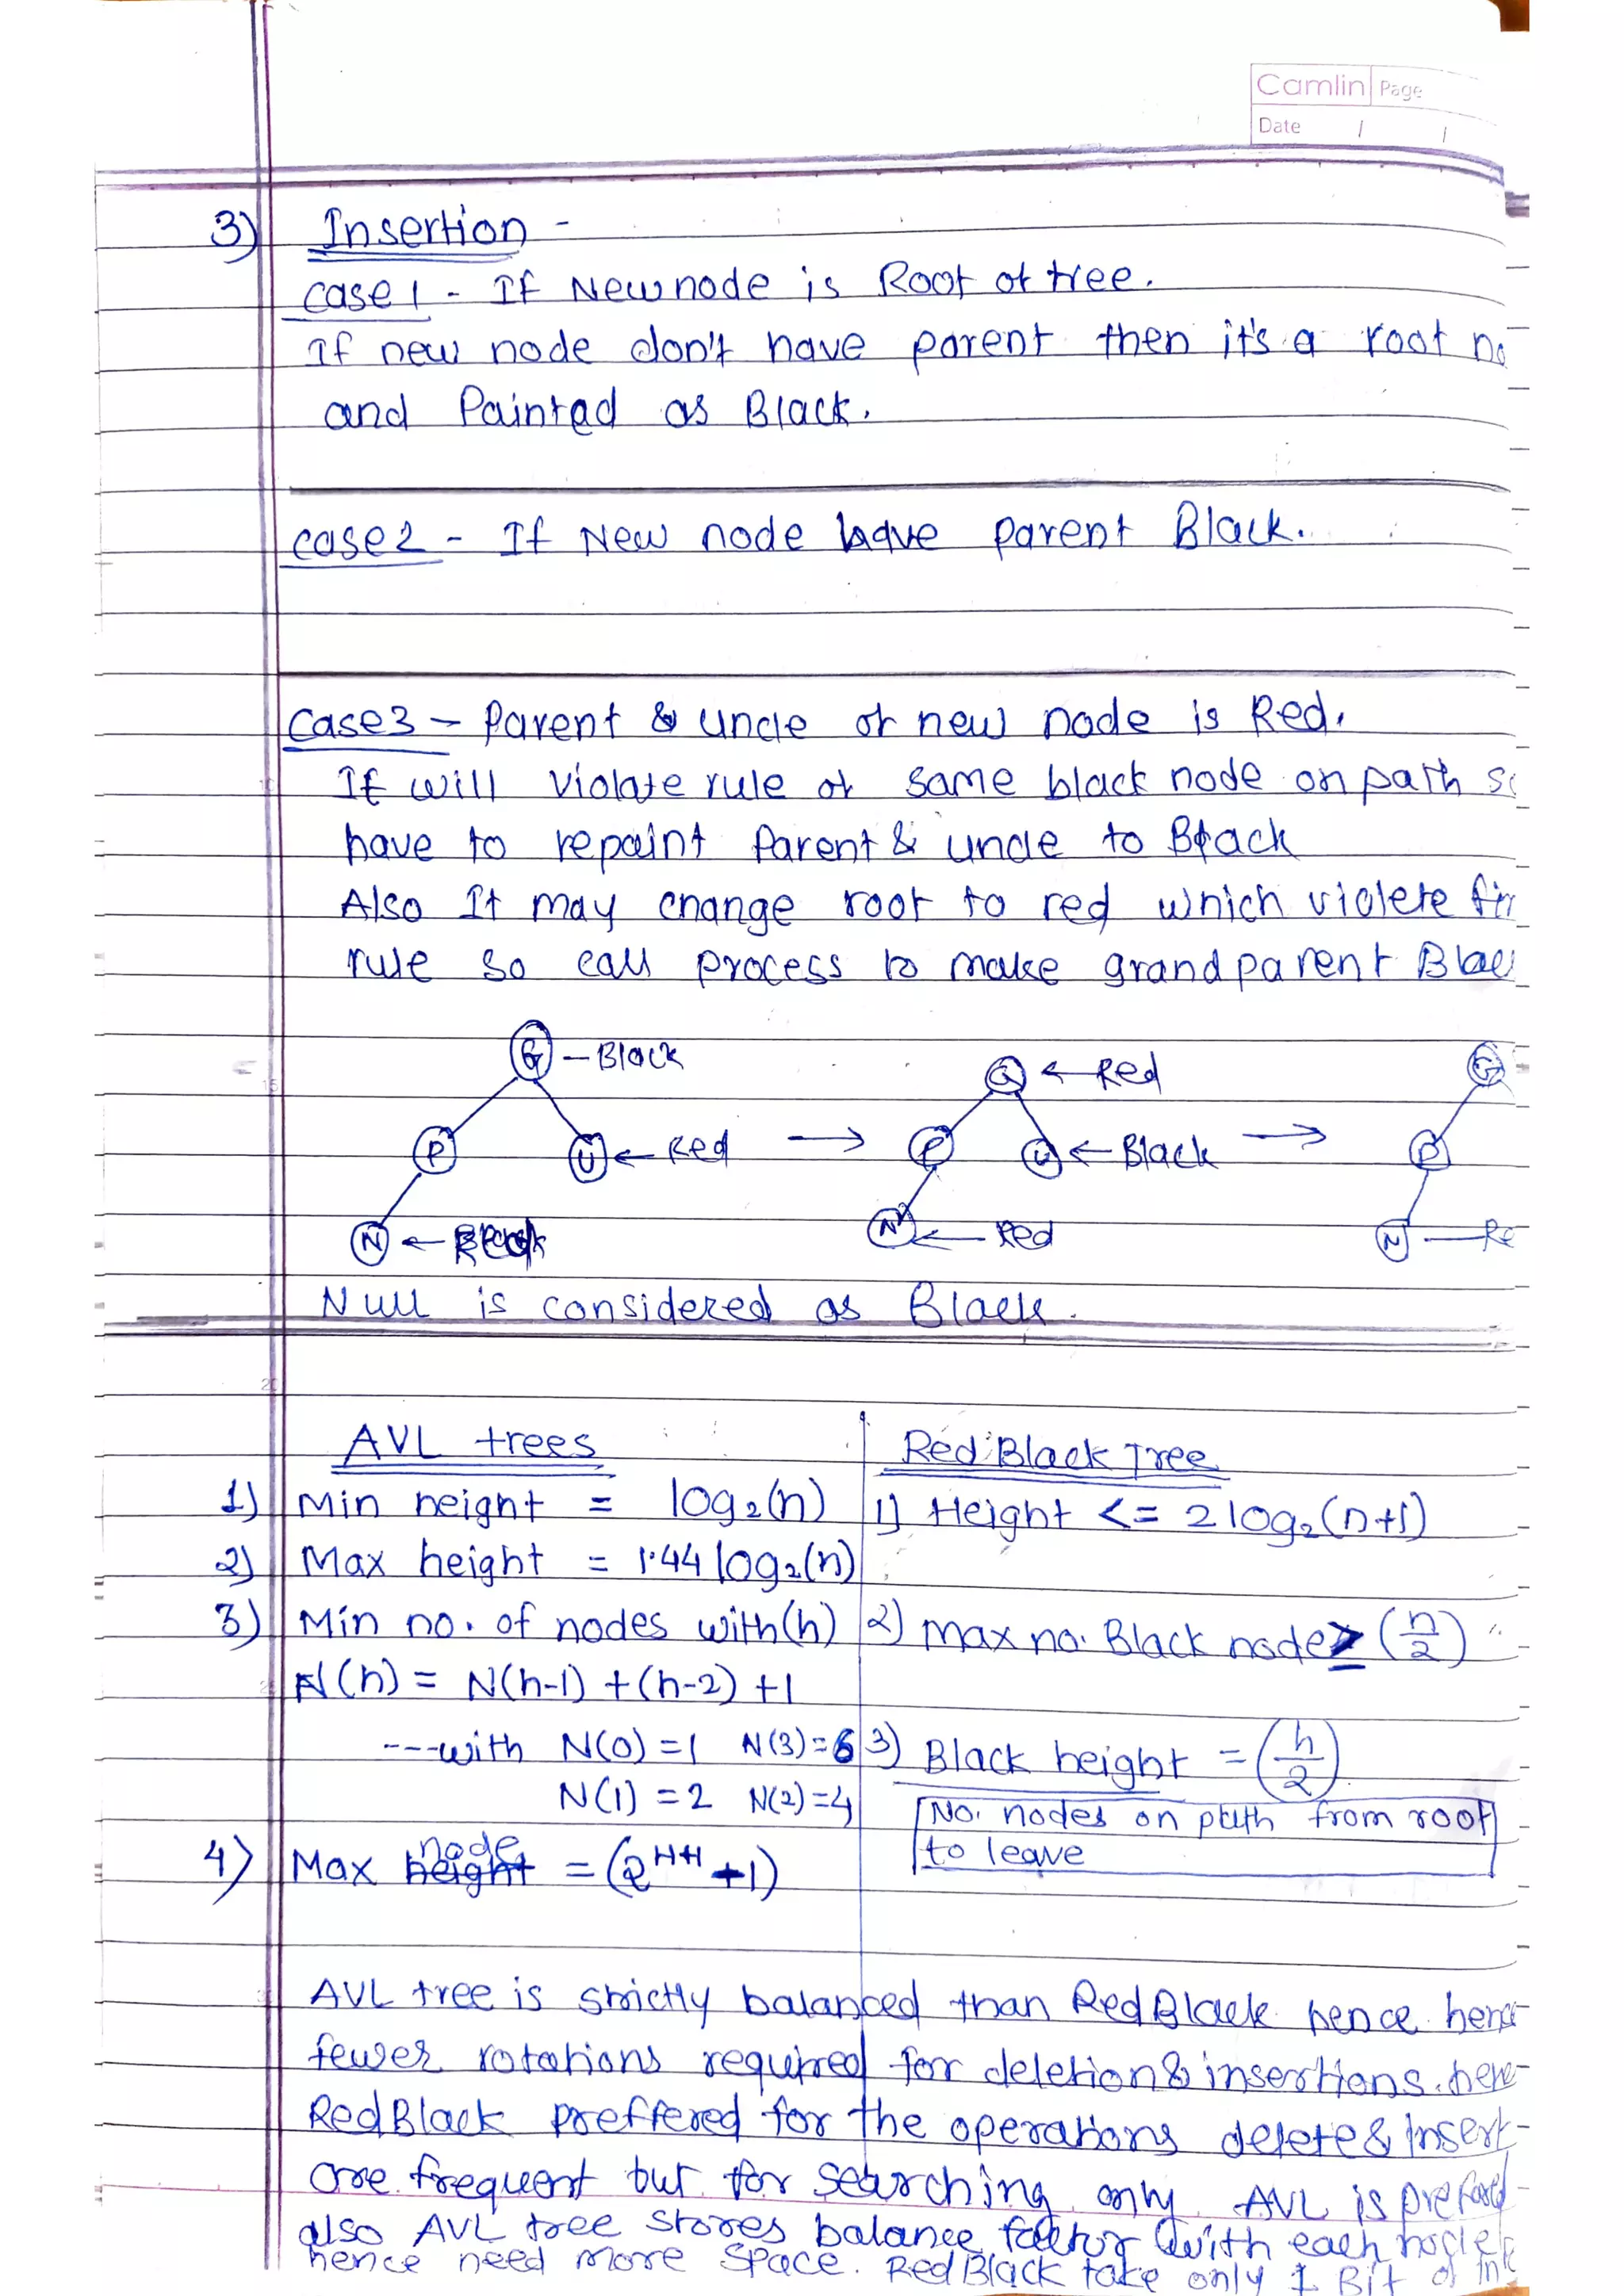 Camlin Page
Date / /
3) Insertion -
case 1 - If New node is Root of tree.
If new node don't have parent then it's a root no
and Painted as Black.
case 2 - If New node have parent Black.
Case 3 - Parent & uncle of new node is Red.
It will violate rule of same black node on path so
have to repaint Parent & uncle to Black
Also It may change root to red which violete fir
rule so call process to make grandparent Blac
G - Black
G ← Red
G
P U ← Red → P U ← Black → P
N ← Red
N ← Red
N - Re
Null is considered as Black.
AVL trees Red Black Tree
1) Min height = log₂(n) 1) Height <= 2 log₂(n+1)
2) Max height = 1.44 log₂(n)
3) Min no. of nodes with (h) 2) max no. Black node ≥ (n/2)
N(h) = N(h-1) + (h-2) + 1
---with N(0) = 1 N(3) = 6 3) Black height = (h/2)
N(1) = 2 N(2) = 4 No. nodes on path from root
to leave
4) Max node = (2^H+1 + 1)
AVL tree is strictly balanced than Red Black hence hence
fewer rotations required for deletion & insertions. hence
Red Black preffered for the operations delete & Insert
are frequent but for searching only AVL is preferd
also AVL tree stores balance factor with each node
hence need more space. Red Black take only 1 Bit of in